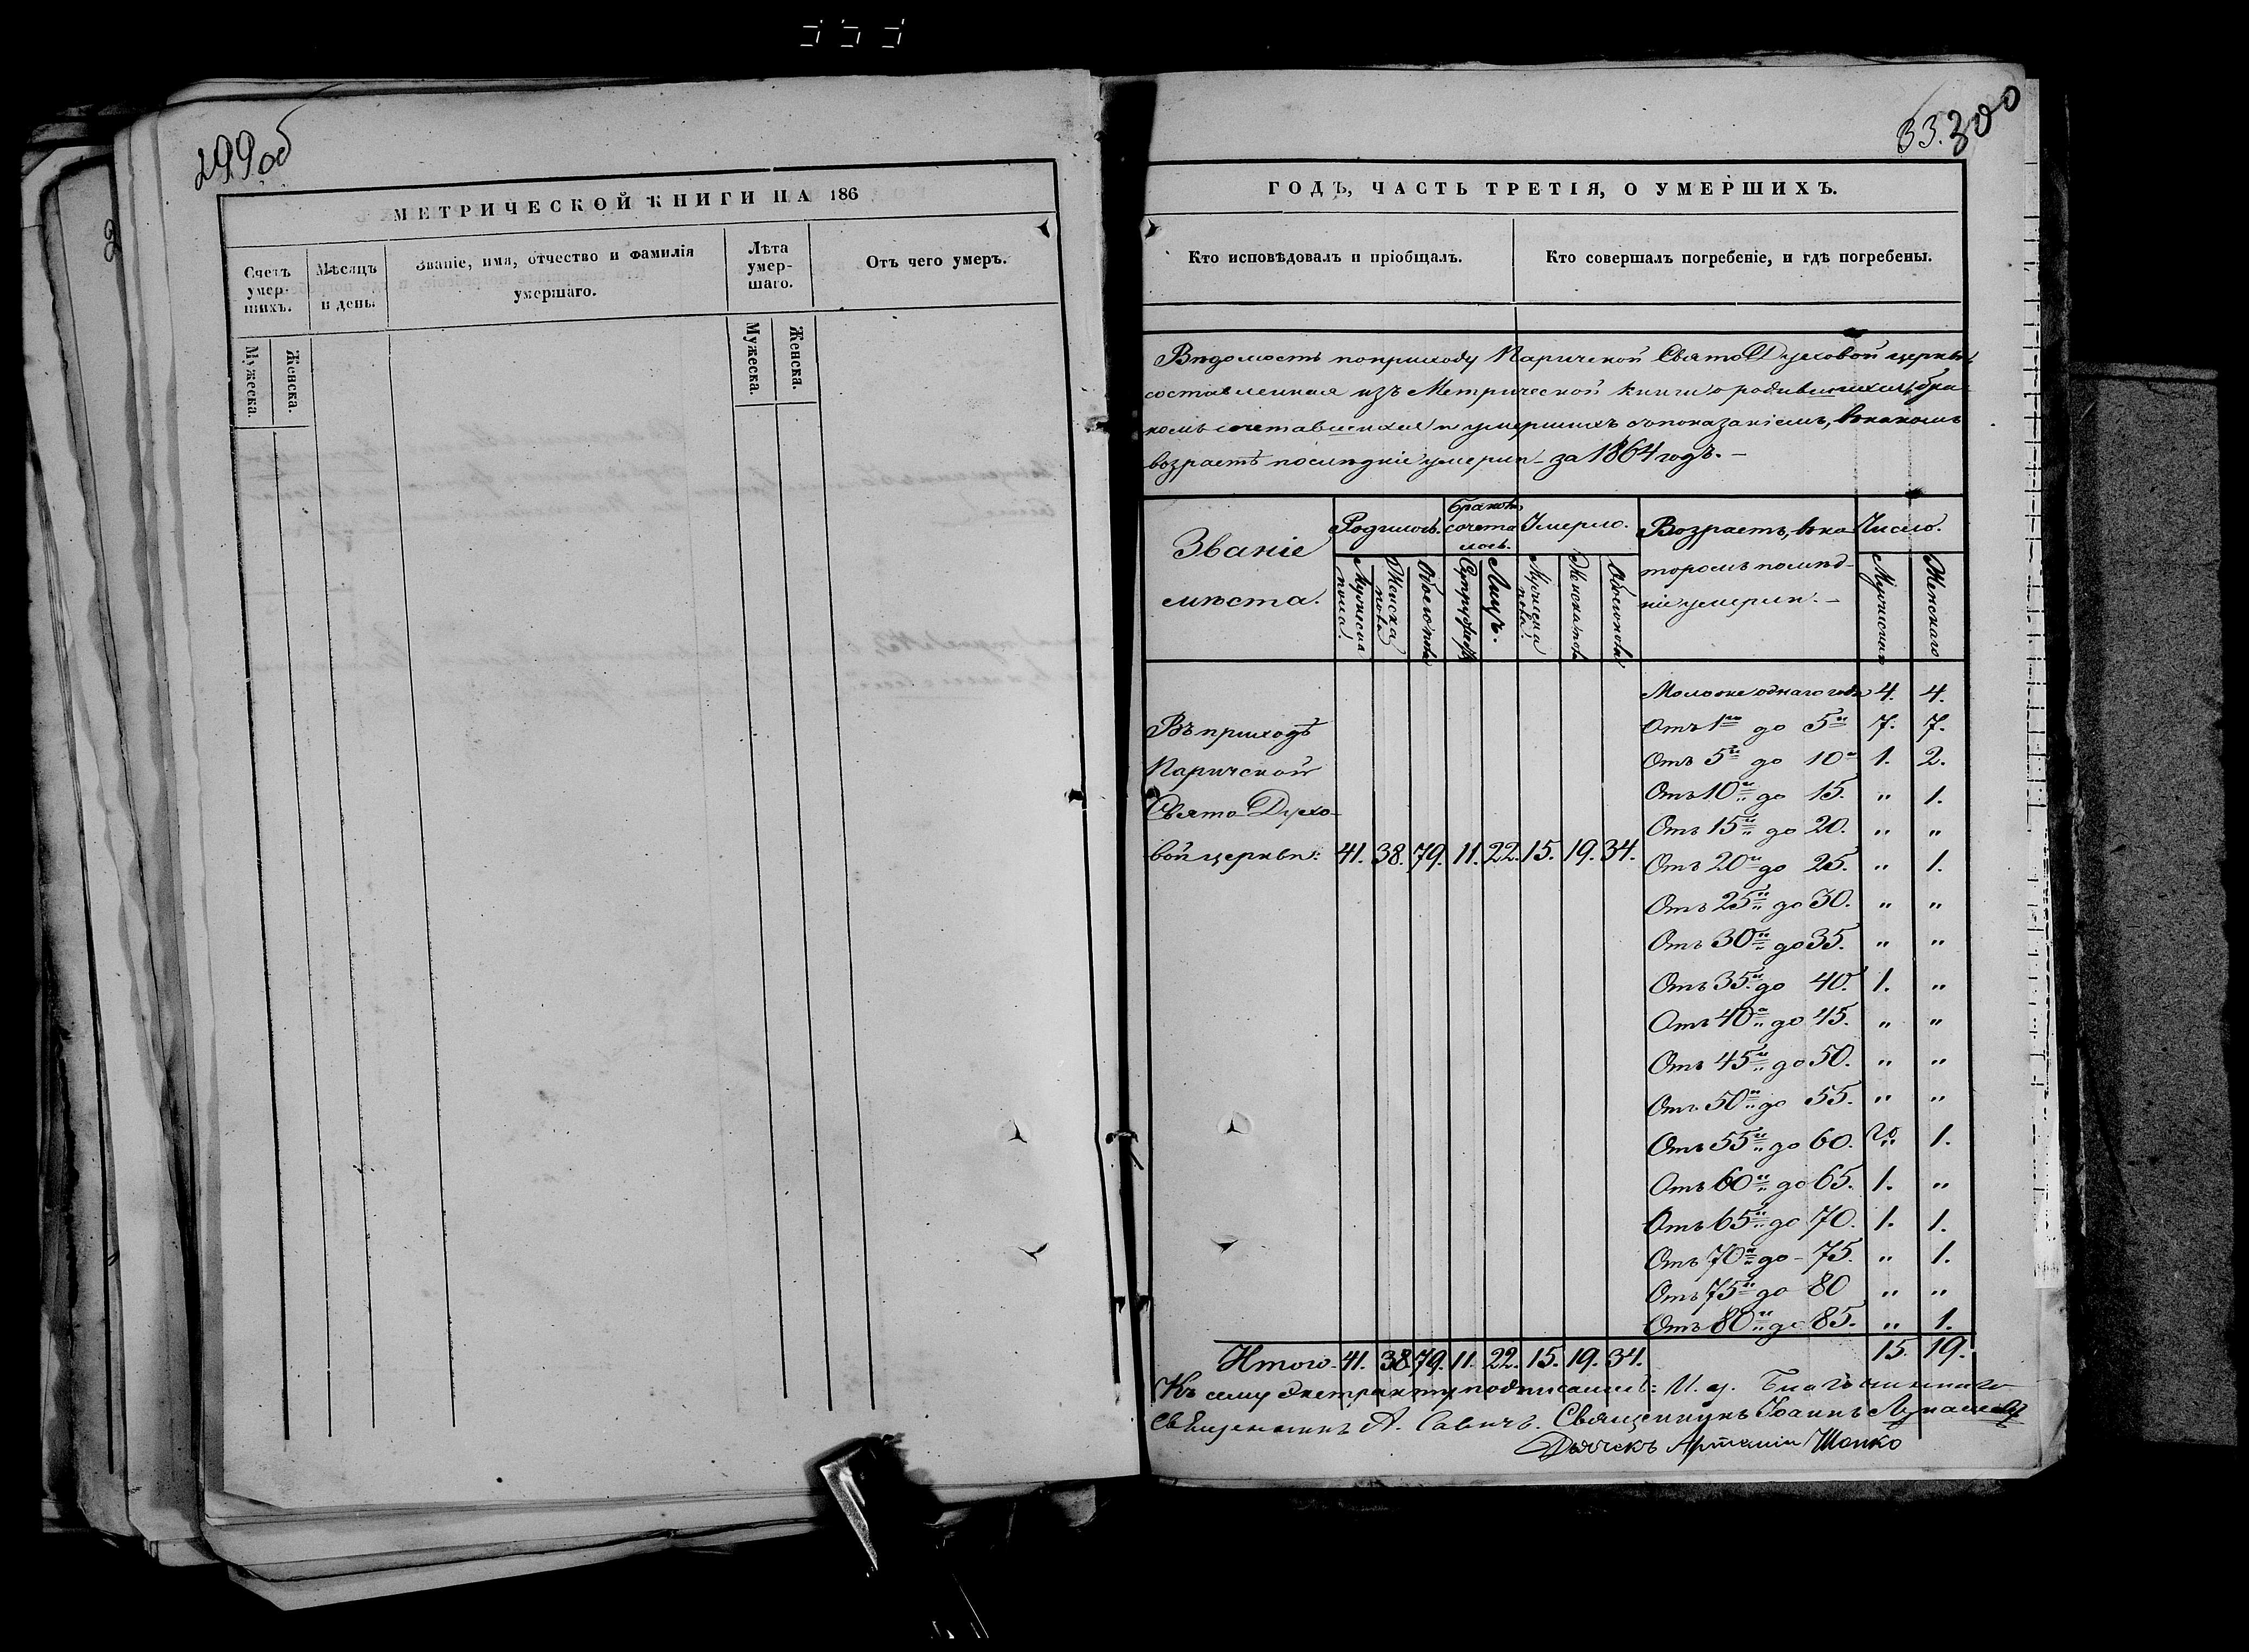 299 об
МЕТРИЧЕСКОЙ КНИГИ НА 186
Счетъ умер-шихъ.
Мѣсяцъ и день.
Званіе, имя, отчество и фамилія умершаго.
Лѣта умер-шаго.
Отъ чего умеръ.
Мужеска.
Женска.
Мужеска.
Женска.
33. 300
ГОДЪ, ЧАСТЬ ТРЕТІЯ, О УМЕРШИХЪ.
Кто исповѣдовалъ и пріобщалъ.
Кто совершалъ погребеніе, и гдѣ погребены.
Вѣдомость по приходу Паричской Свято Духовой церкви
составленная изъ Метрической книги о родившихся, бра-
комъ сочетавшихся и умершихъ съ показаніемъ, въ какомъ
возрастѣ послѣдніе умерли – за 1864 годъ. –
Званіе мѣста.
Родилось.
Бракомъ сочета лось.
Умерло.
Возрастъ, въ ко торомъ послѣд-ніе умерли. –
Число.
Мужеска пола.
Женска пола
Обоего пола
Супружествъ
Лицъ.
Мужеска пола.
Женска пола
Обоего пола
Мужескаго
Женскаго
Моложе однаго года 4. 4.
Отъ 1го до 5и 7. 7.
Отъ 5и до 10и 1. 2.
Отъ 10и до 15. " 1.
Отъ 15и до 20. " "
Отъ 20и до 25. " 1.
Отъ 25и до 30. " "
Отъ 30и до 35. " "
Отъ 35и до 40. 1. "
Отъ 40а до 45. " "
Отъ 45и до 50. " "
Отъ 50и до 55. " "
Отъ 55и до 60. " 1.
Отъ 60и до 65. 1. "
Отъ 65и до 70. 1. 1.
Отъ 70и до 75. " 1.
Отъ 75и до 80 " "
Отъ 80и до 85. " 1.
Въ приходѣ
Паричской
Свято Духо-
вой церкви: 41. 38. 79. 11. 22. 15. 19. 34.
Итого 41. 38. 79. 11. 22. 15. 19. 34. 15. 19.
Къ сему экстракту подписались: И. д. Благочиннаго
Священникъ А. Савичъ. Священникъ Іоаннъ
Дьячекъ Артемій Шопко